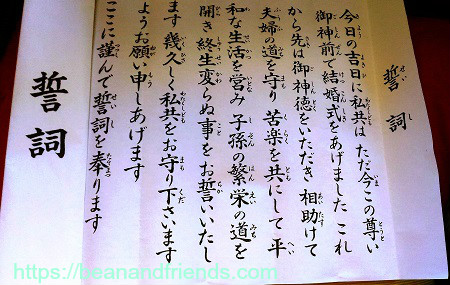 誓詞
今日の吉日に私共は ただ今この尊い
御神前で結婚式をあげました これ
から先は御神徳をいただき 相助けて
夫婦の道を守り 苦楽を共にして 平
和な生活を営み 子孫の繁栄の道を
開き 終生変らぬ事をお誓いいたし
ます 幾久しく私共をお守り下さいます
ようお願い申しあげます
ここに謹んで誓詞を奉ります
誓詞
https://beanandfriends.com